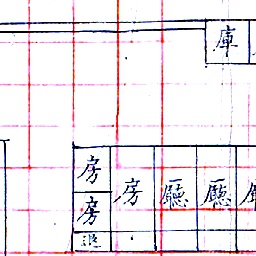 庫
房
房
房
廳
廳